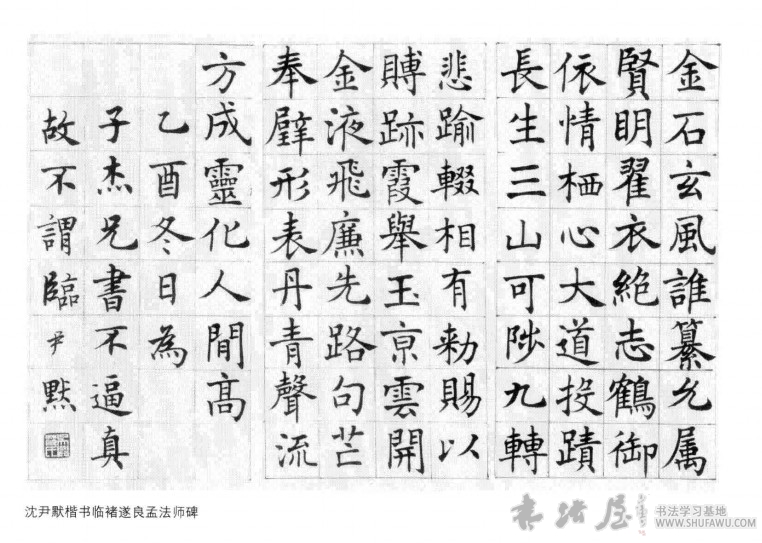 金石玄風誰纂允属
賢明翟衣絶志鶴御
依情栖心大道投蹟
長生三山可陟九轉
悲踰輟相有勑賜以
賻跡霞舉玉亰雲開
金液飛廉先路句芒
奉璧形表丹青聲流
方成靈化人間高
乙酉冬日為
子杰兄書不逼真
故不謂臨尹默
沈尹默楷书临褚遂良孟法师碑
书法屋
书法学习基地
WWW.SHUFAWU.COM